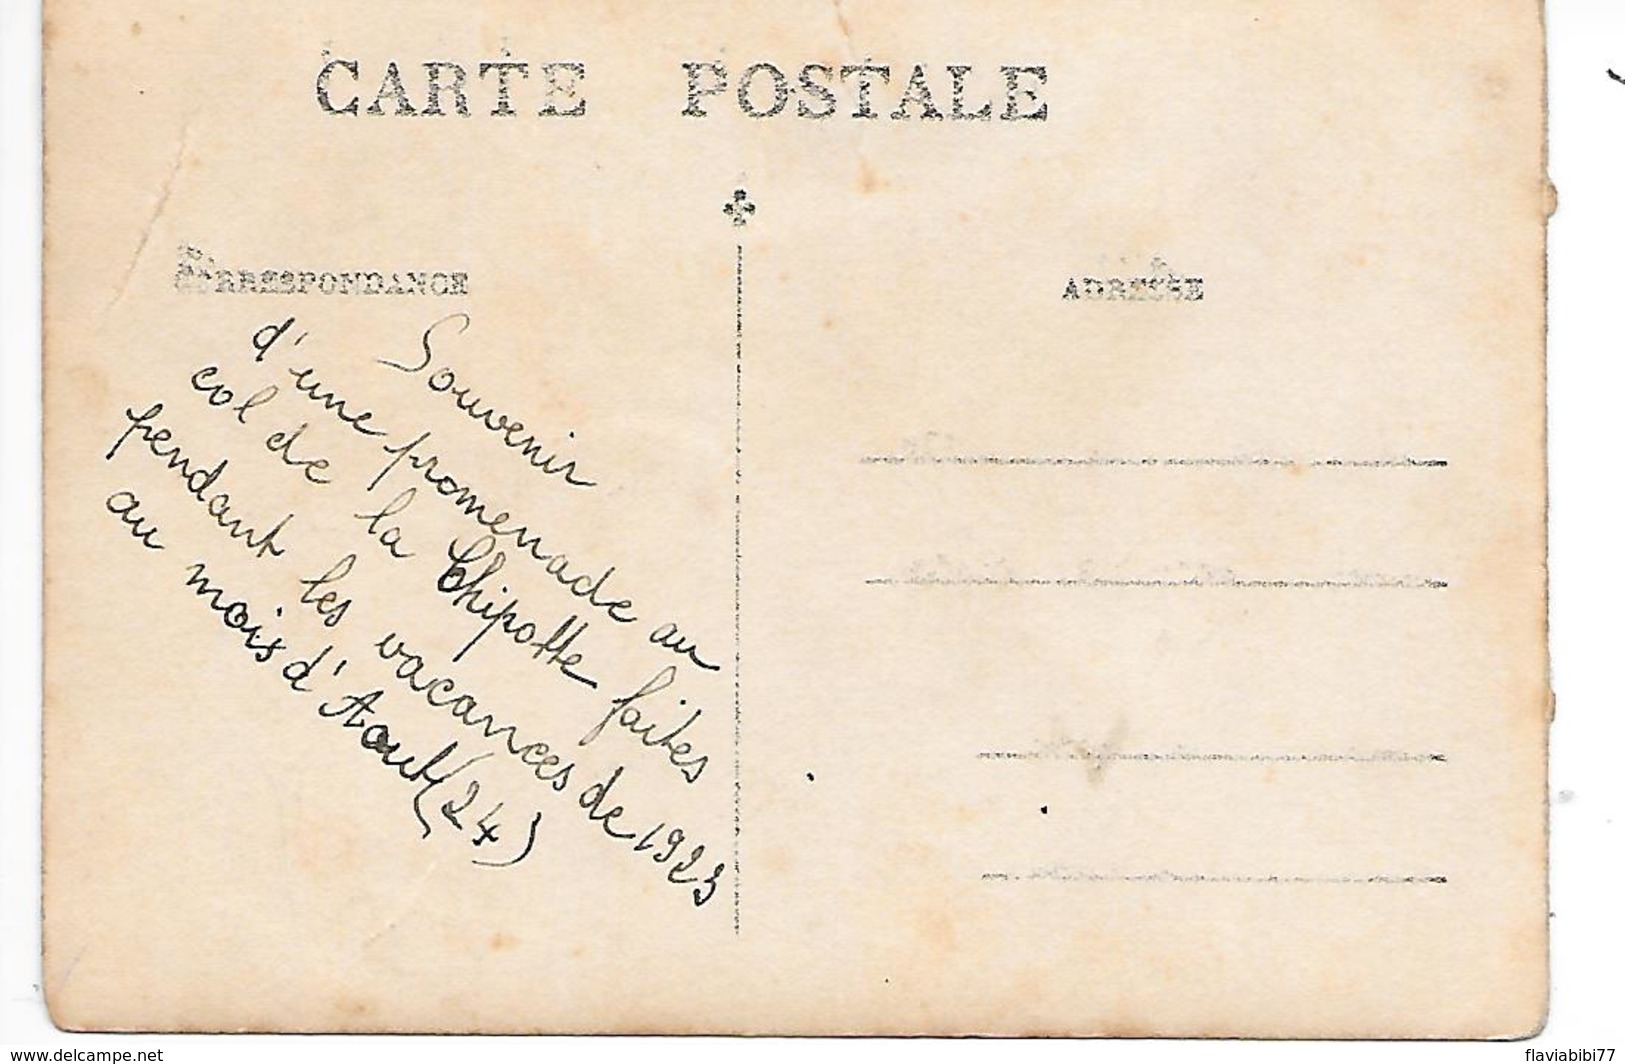 CARTE POSTALE
CORRESPONDANCE
ADRESSE
Souvenir
d'une promenade au
col de la Chipotte faites
pendant les vacances de 1923
au mois d'Aout (24)
www.delcampe.net
flaviabibi77